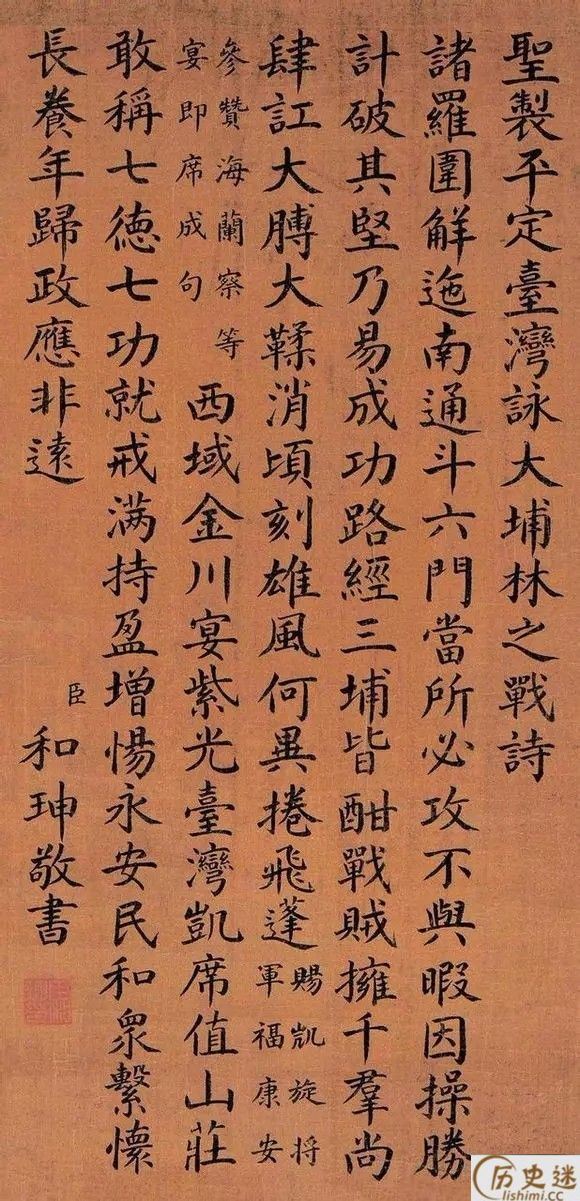 聖製平定臺灣詠大埔林之戰詩
諸羅圍解迤南通斗六門當所必攻不與暇因操勝
計破其堅乃易成功路經三埔皆酣戰賊擁千羣尚
肆訌大膊大鞣消頃刻雄風何異捲飛蓬賜凱旋將軍福康安
參贊海蘭察等宴即席成句西域金川宴紫光臺灣凱席值山莊
敢稱七德七功就戒满持盈增惕永安民和衆繫懷
長養年歸政應非遠
臣和珅敬書
历史迷
lishimi.cc